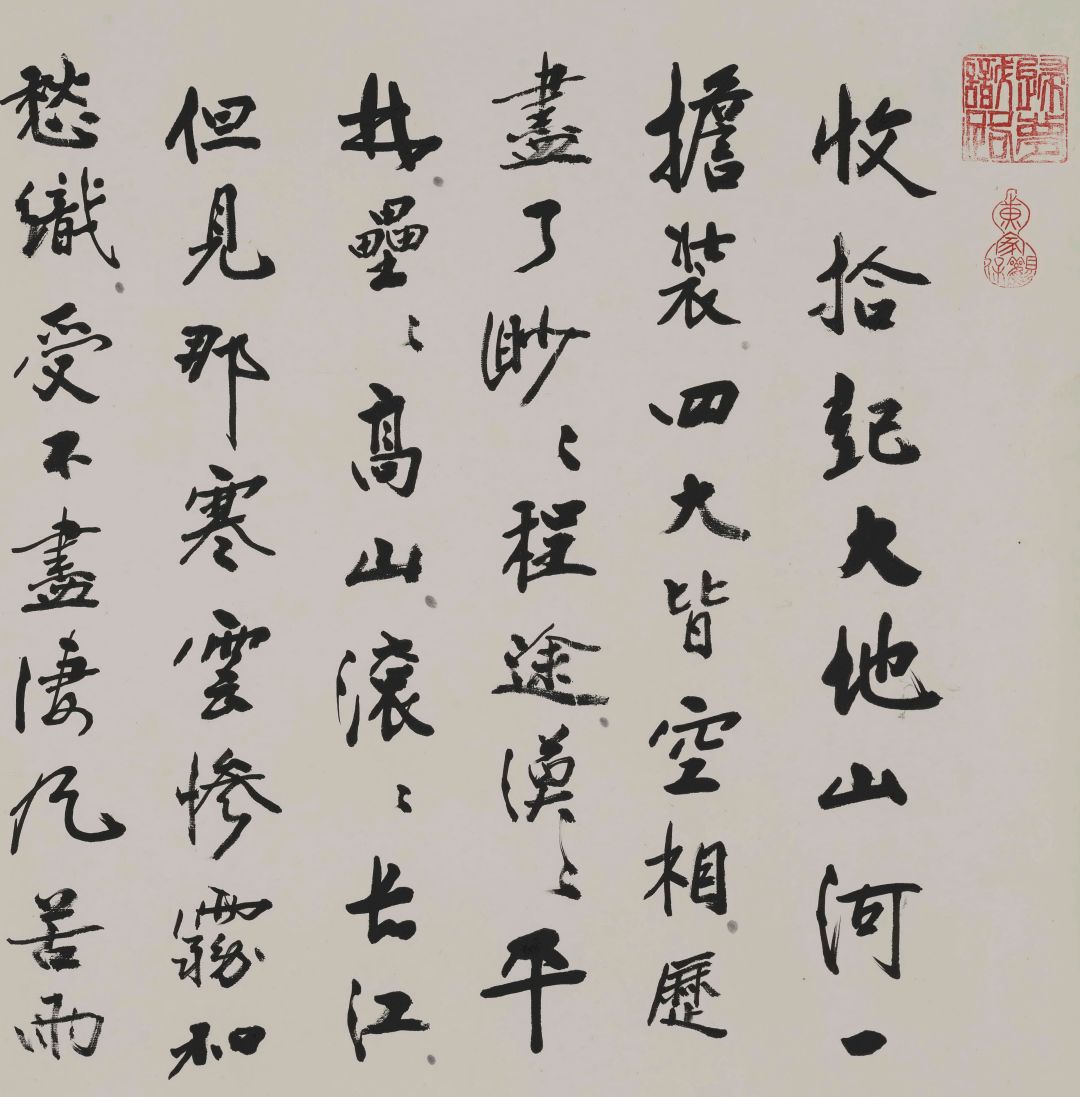 收拾起大地山河一
擔裝四大皆空相歷
盡了眇〻程途漠〻平
林壘〻高山滾〻長江
但見那寒雲慘霧和
愁織受不盡淒風苦雨